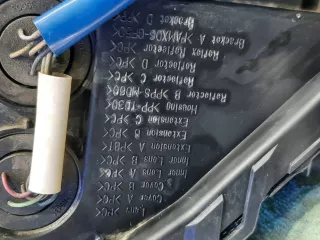 Lens >PC<
Cover A >PC<
Cover B >PC<
Inner Lens A >PC<
Inner Lens B >PC<
Extension A >PBT<
Extension B >PC<
Extension C >PC<
Housing >PP-TD30<
Reflector B
Reflector C >PC<
Reflector D >PC<
Reflex Reflector
Bracket A
Bracket D